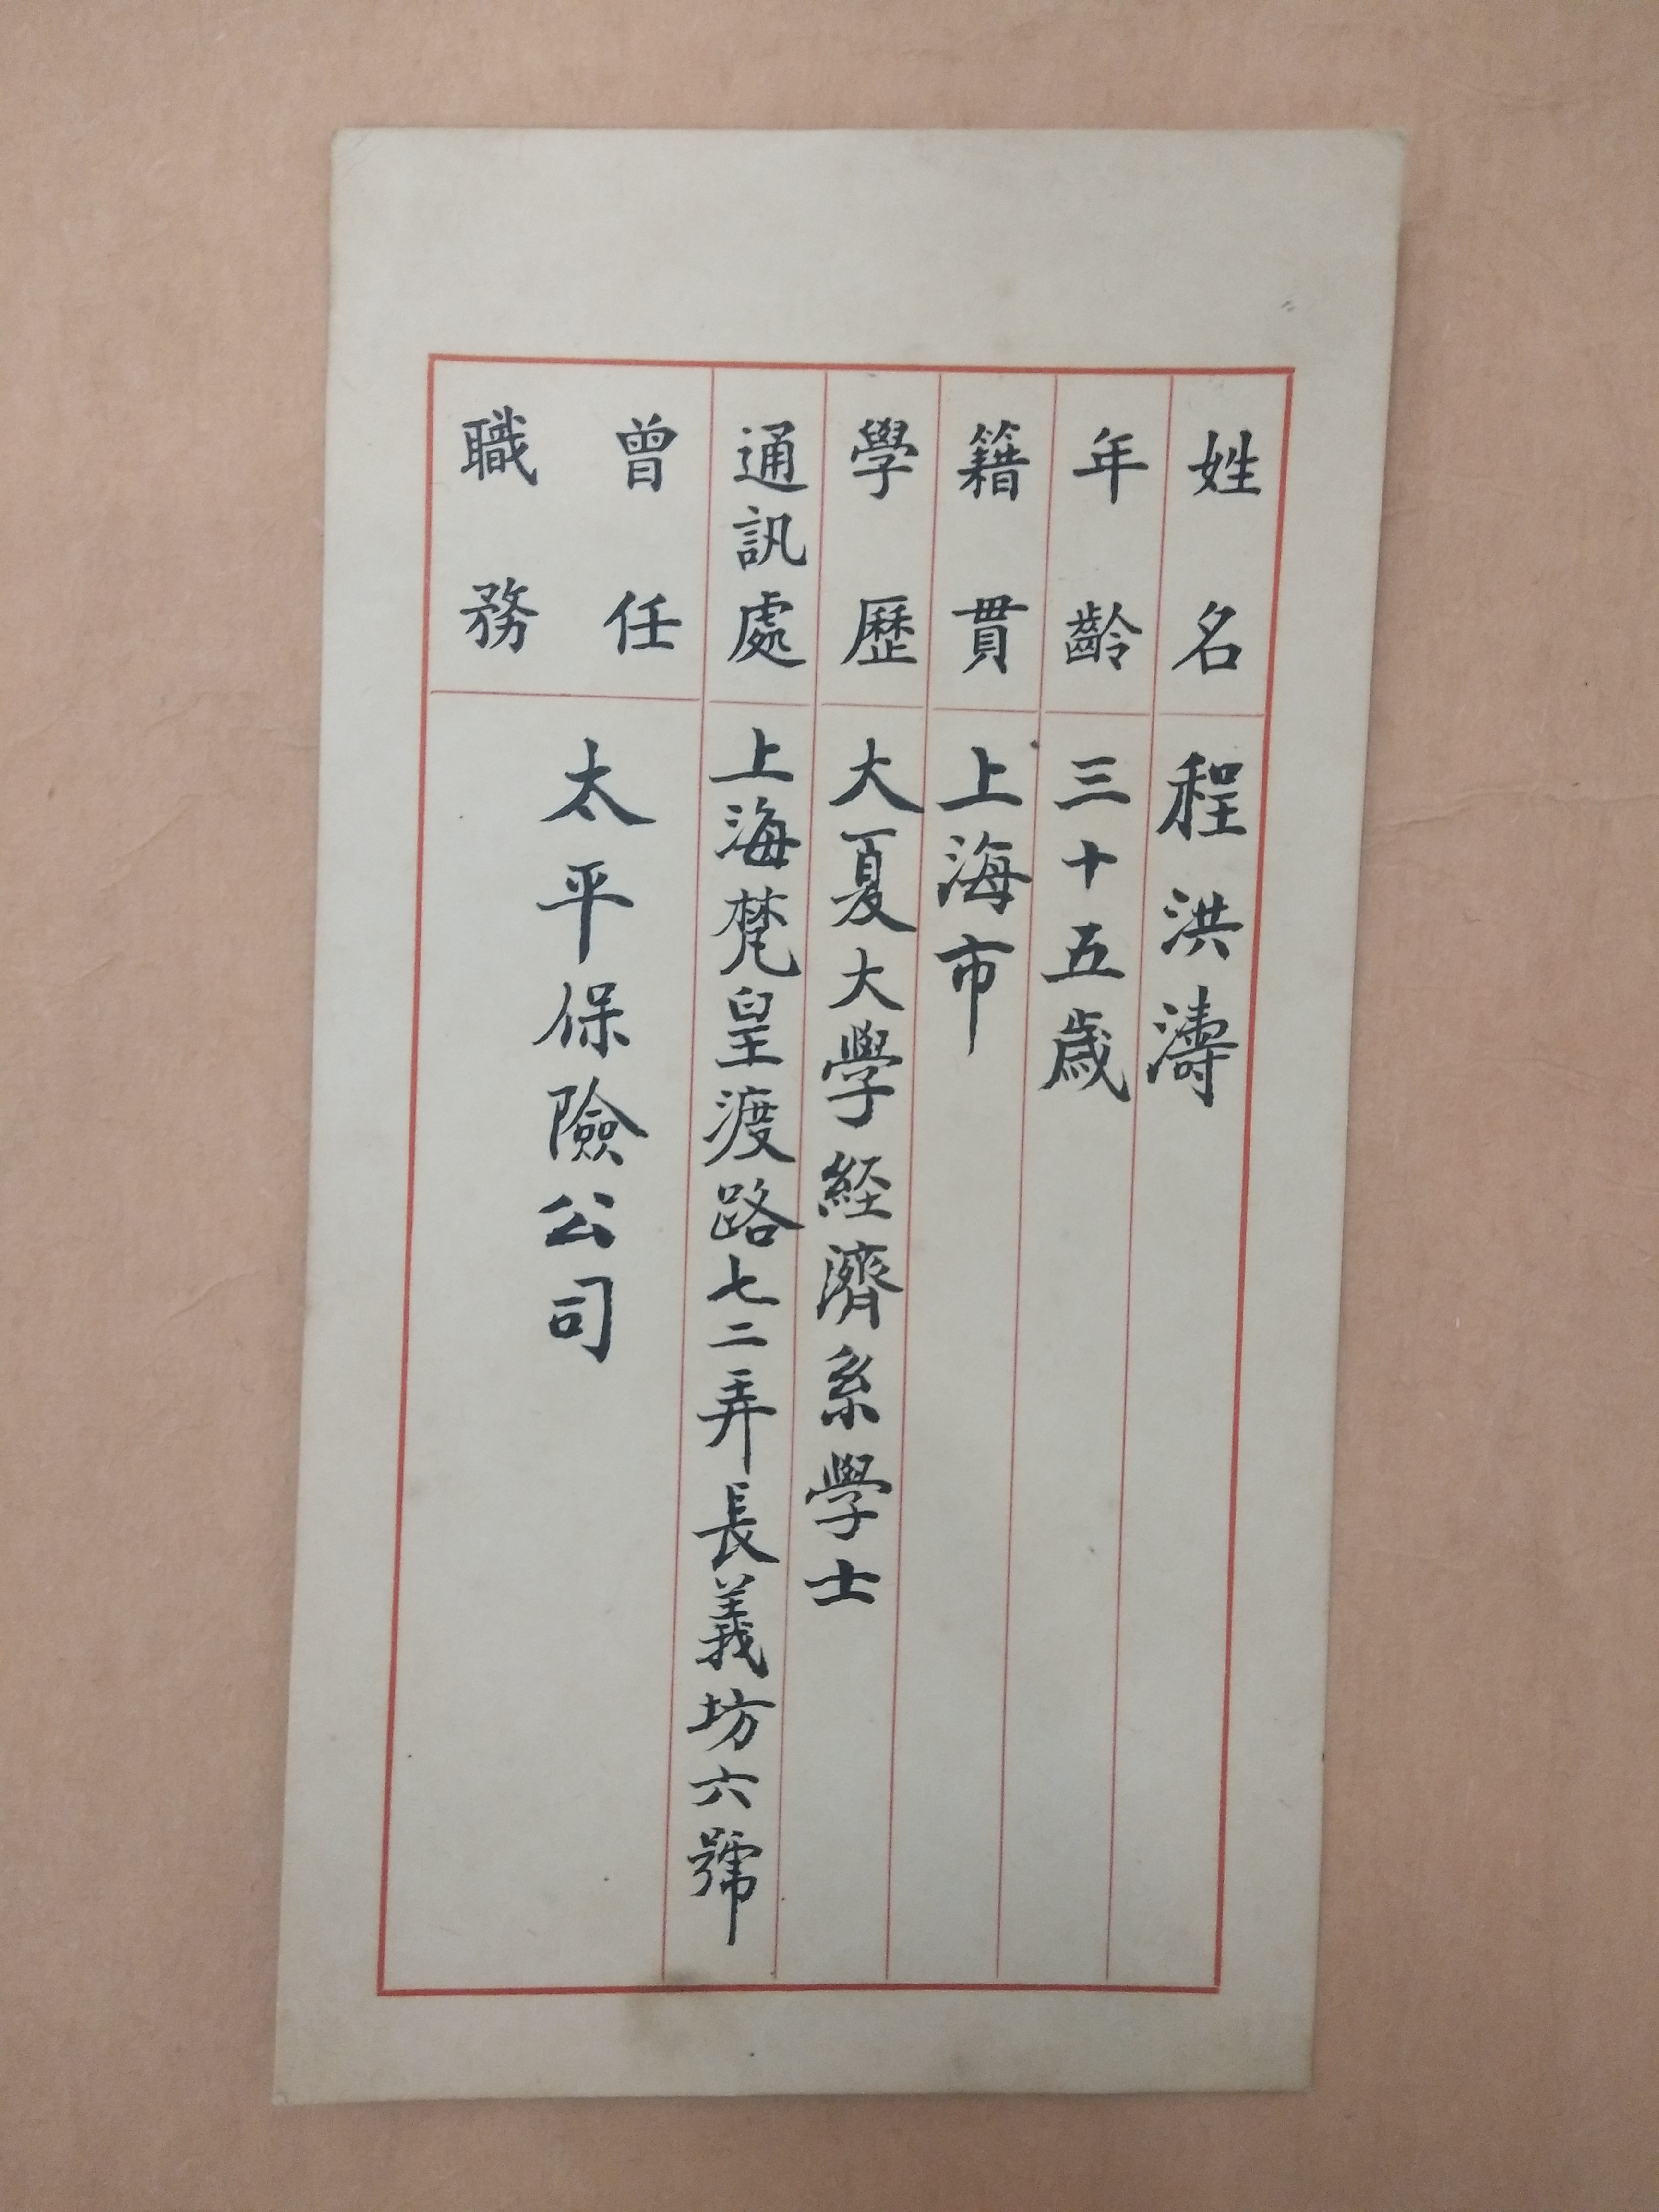 姓名 程洪濤
年齡 三十五歲
籍貫 上海市
學歷 大夏大學經濟系學士
通訊處 上海梵皇渡路七二弄長義坊六號
曾任職務 太平保險公司